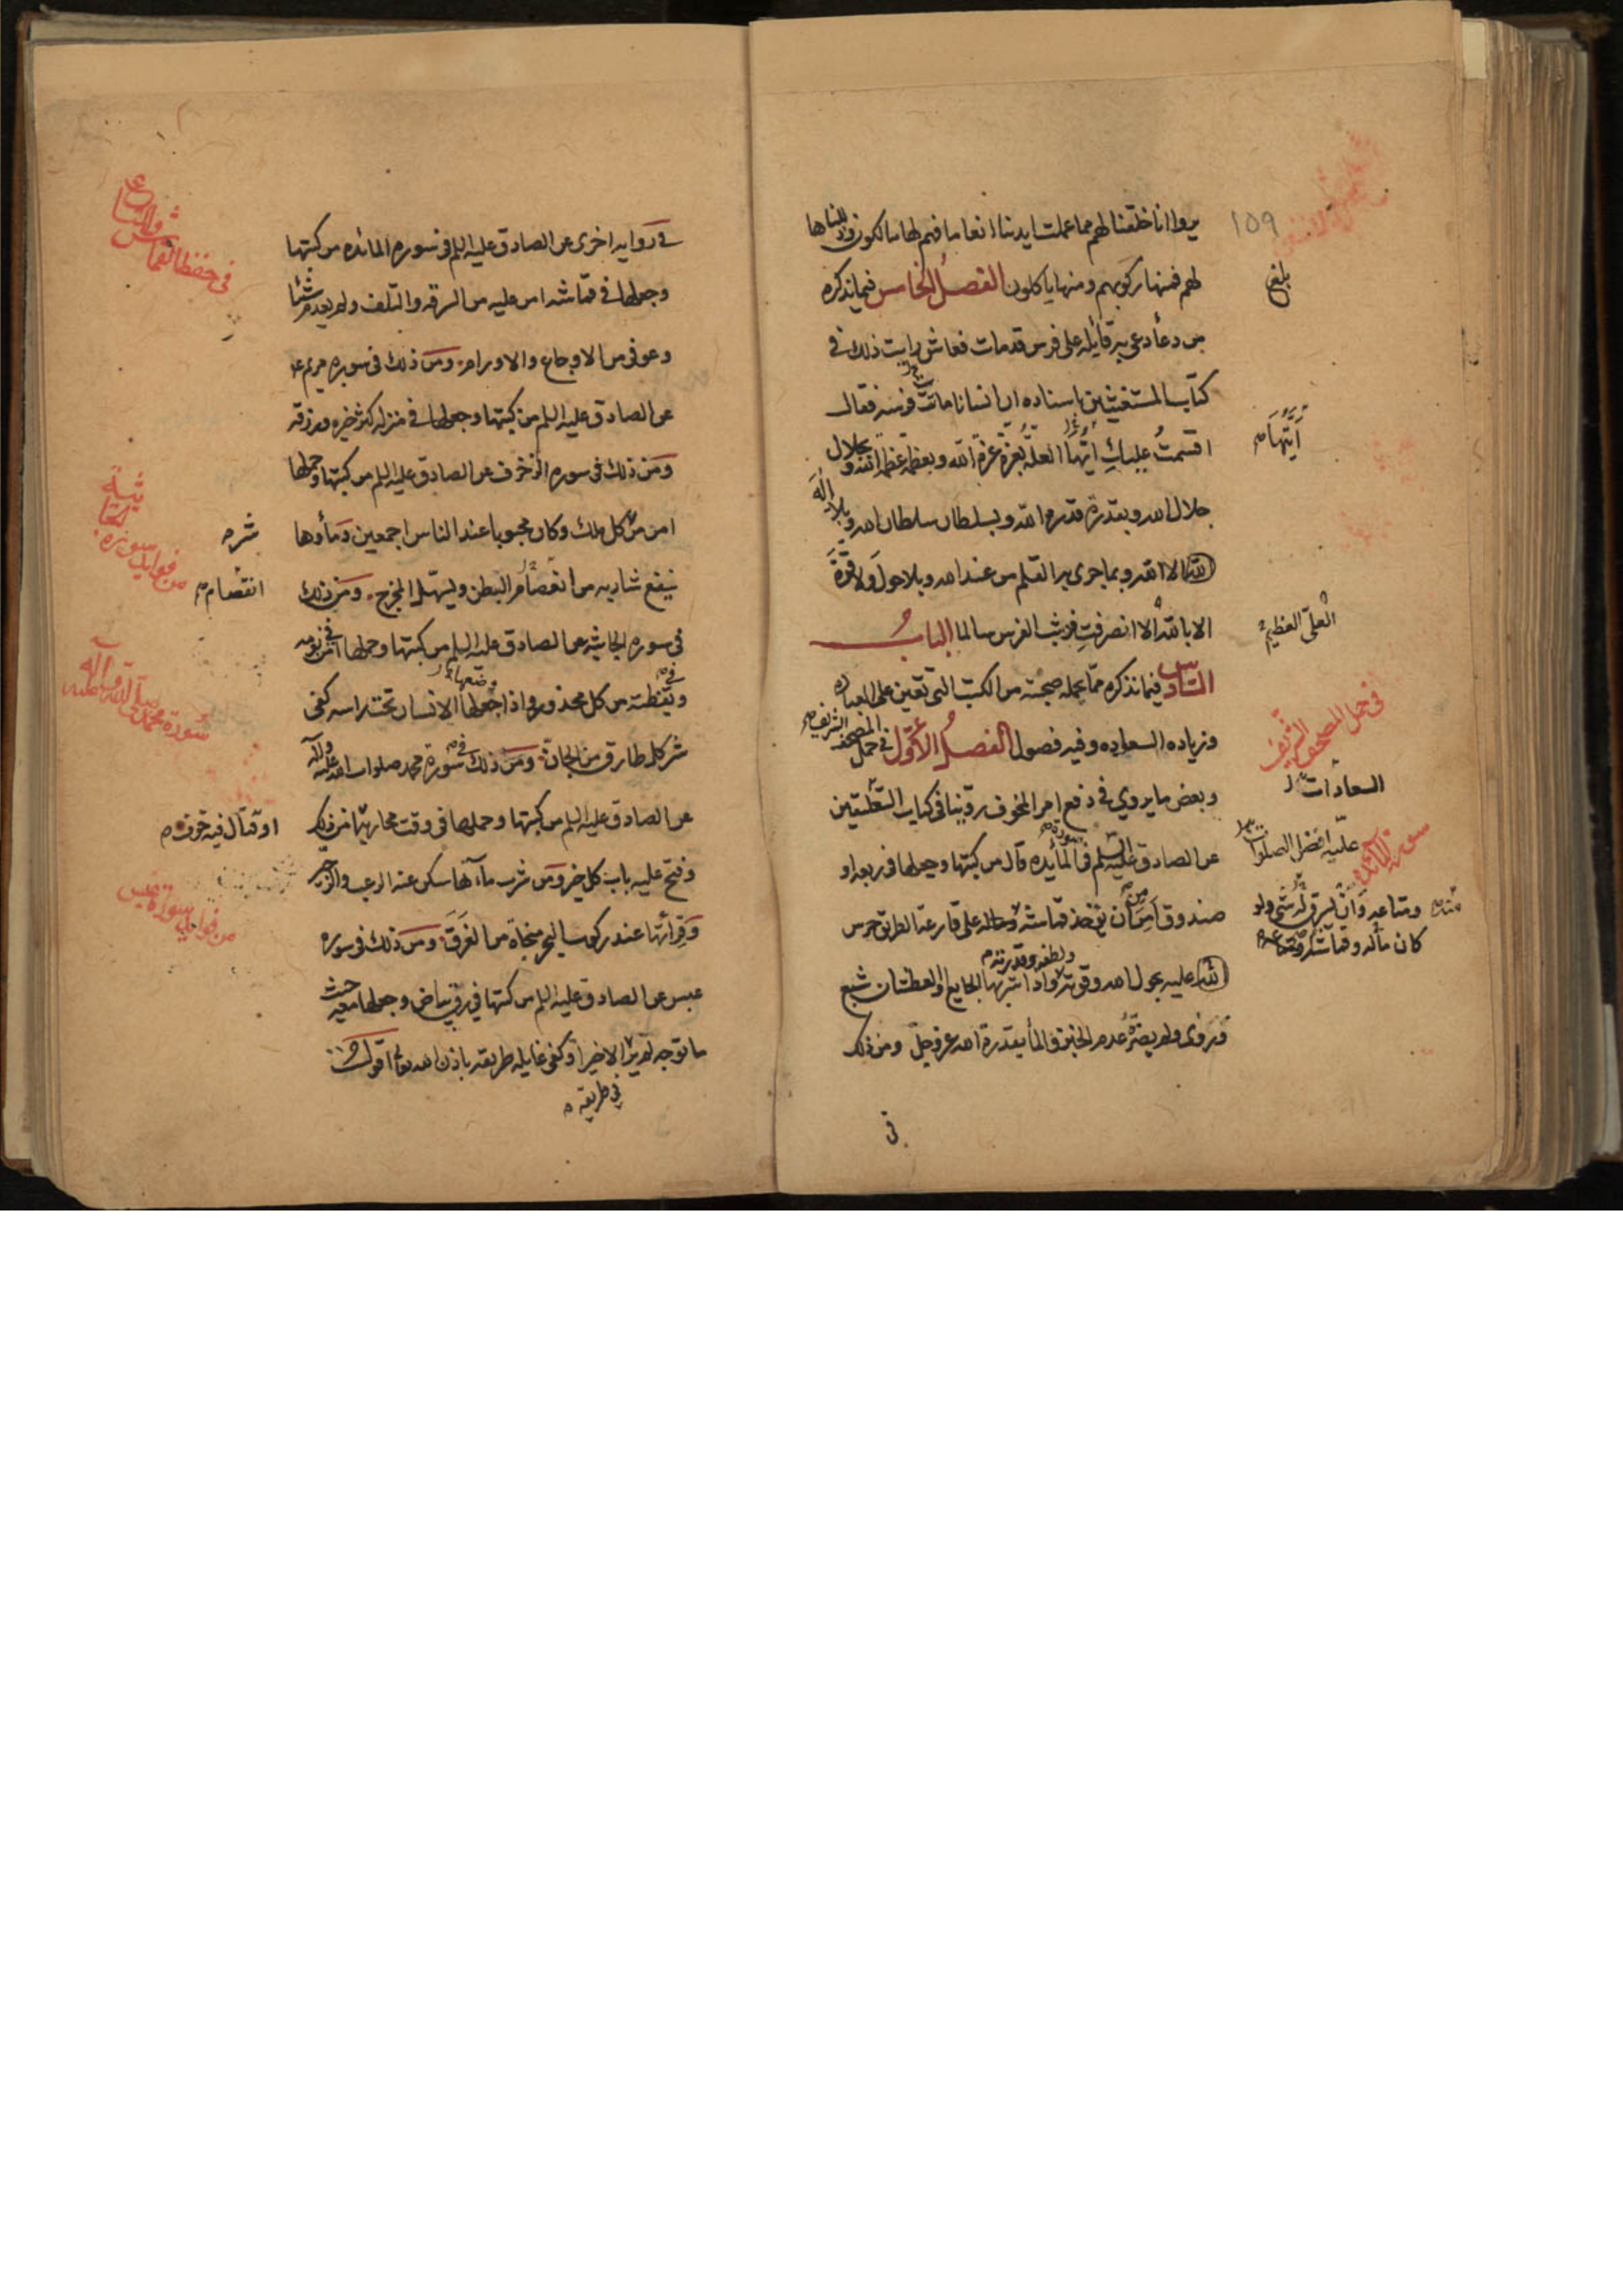 يروا انا خلقنا لهم مما عملت ايدينا انعاما فهم لها مالكون وذللناها
لهم فمنها ركوبهم ومنها ياكلون الفصل الخامس فيما نذكره
من دعا دعى به قائله على فرس قد مات فعاش رايت ذلك فى
كتاب المستغيثين باسناده ان انسانا ماتت فرسه فقال
اقسمت عليك ايها العلة بعزة عزة الله وبعظمة عظمة الله وبجلال
جلال الله وبقدرة قدرة الله وبسلطان سلطان الله وبلا اله
الا الله وبما جرى به القلم من عند الله وبلا حول ولا قوة
الا بالله الا انصرفت فوثب الفرس سالما الباب
السادس فيما نذكره مما يحمله صحبته من الكتب التى تعين على العباده
وزياده السعاده وفيه فصول الفصل الاول فى حمل المصحف الشريف
وبعض ما يروي فى دفع امر المخوف روينا فى كتاب
عن الصادق عليه السلم فى سورة المائده قال من كتبها وجعلها فى ربعه او
صندوق امن ان يؤخذ قماشه على قارعة الطريق حرس
عليه بحول الله وقوته واذا شربها الجايع او العطشان شبع
وروى ولم يضره عدم الخبز والما بقدرة الله عز وجل ومن ذلك
فى
١٥٩
بلغ
ايتها
العلى العظيم
فى حمل المصحف الشريف
السعادات
عليه افضل الصلوات
سورة المائده
ومتاعه وان يسرق له شى ولو
كان ماله وقماشه
فى رواية اخرى عن الصادق عليه السلم فى سورة المائده من كتبها
وجعلها فى قماشه امن عليه من السرقه والتلف ولم يعدم شيئا
وعوفى من الاوجاع والاورام ومن ذلك فى سورة مريم ع
عن الصادق عليه السلم من كتبها وجعلها فى منزله كثر خيره ورزقه
ومن ذلك فى سورة الزخرف عن الصادق عليه السلم من كتبها وحملها
امن من كل ملك وكان محبوبا عند الناس اجمعين وماؤها
ينفع شاربه من انفصام البطن ويسهل المخرج ومن ذلك
فى سورة الجاثيه عن الصادق عليه السلم من كتبها وحملها امن فى نومه
وفى يقظته من كل محذور واذا جعلها الانسان تحت راسه كفى
شر كل طارق من الجان ومن ذلك فى سورة محمد صلوات الله عليه وآله
عن الصادق عليه السلم من كتبها وحملها فى وقت محاربة امن ذلك
وفتح عليه باب كل خير ومن شرب مآءها سكن عنه الرعب والزحير
وقرأتها عند ركوب البحر منجاة من الغرق ومن ذلك فى سورة
عبس عن الصادق عليه السلم من كتبها فى رق بياض وجعلها معه حيث
ما توجه لم ير الا خيرا وكفى غايلة طريقه باذن الله تعالى اقول
فى طريقه
فى حفظ القماش والمتاع
شره
من فوايد سورة الجاثية
انقصام
سورة محمد صلى الله عليه وآله
او قتال فيه خوف
من فوايد سورة عبس